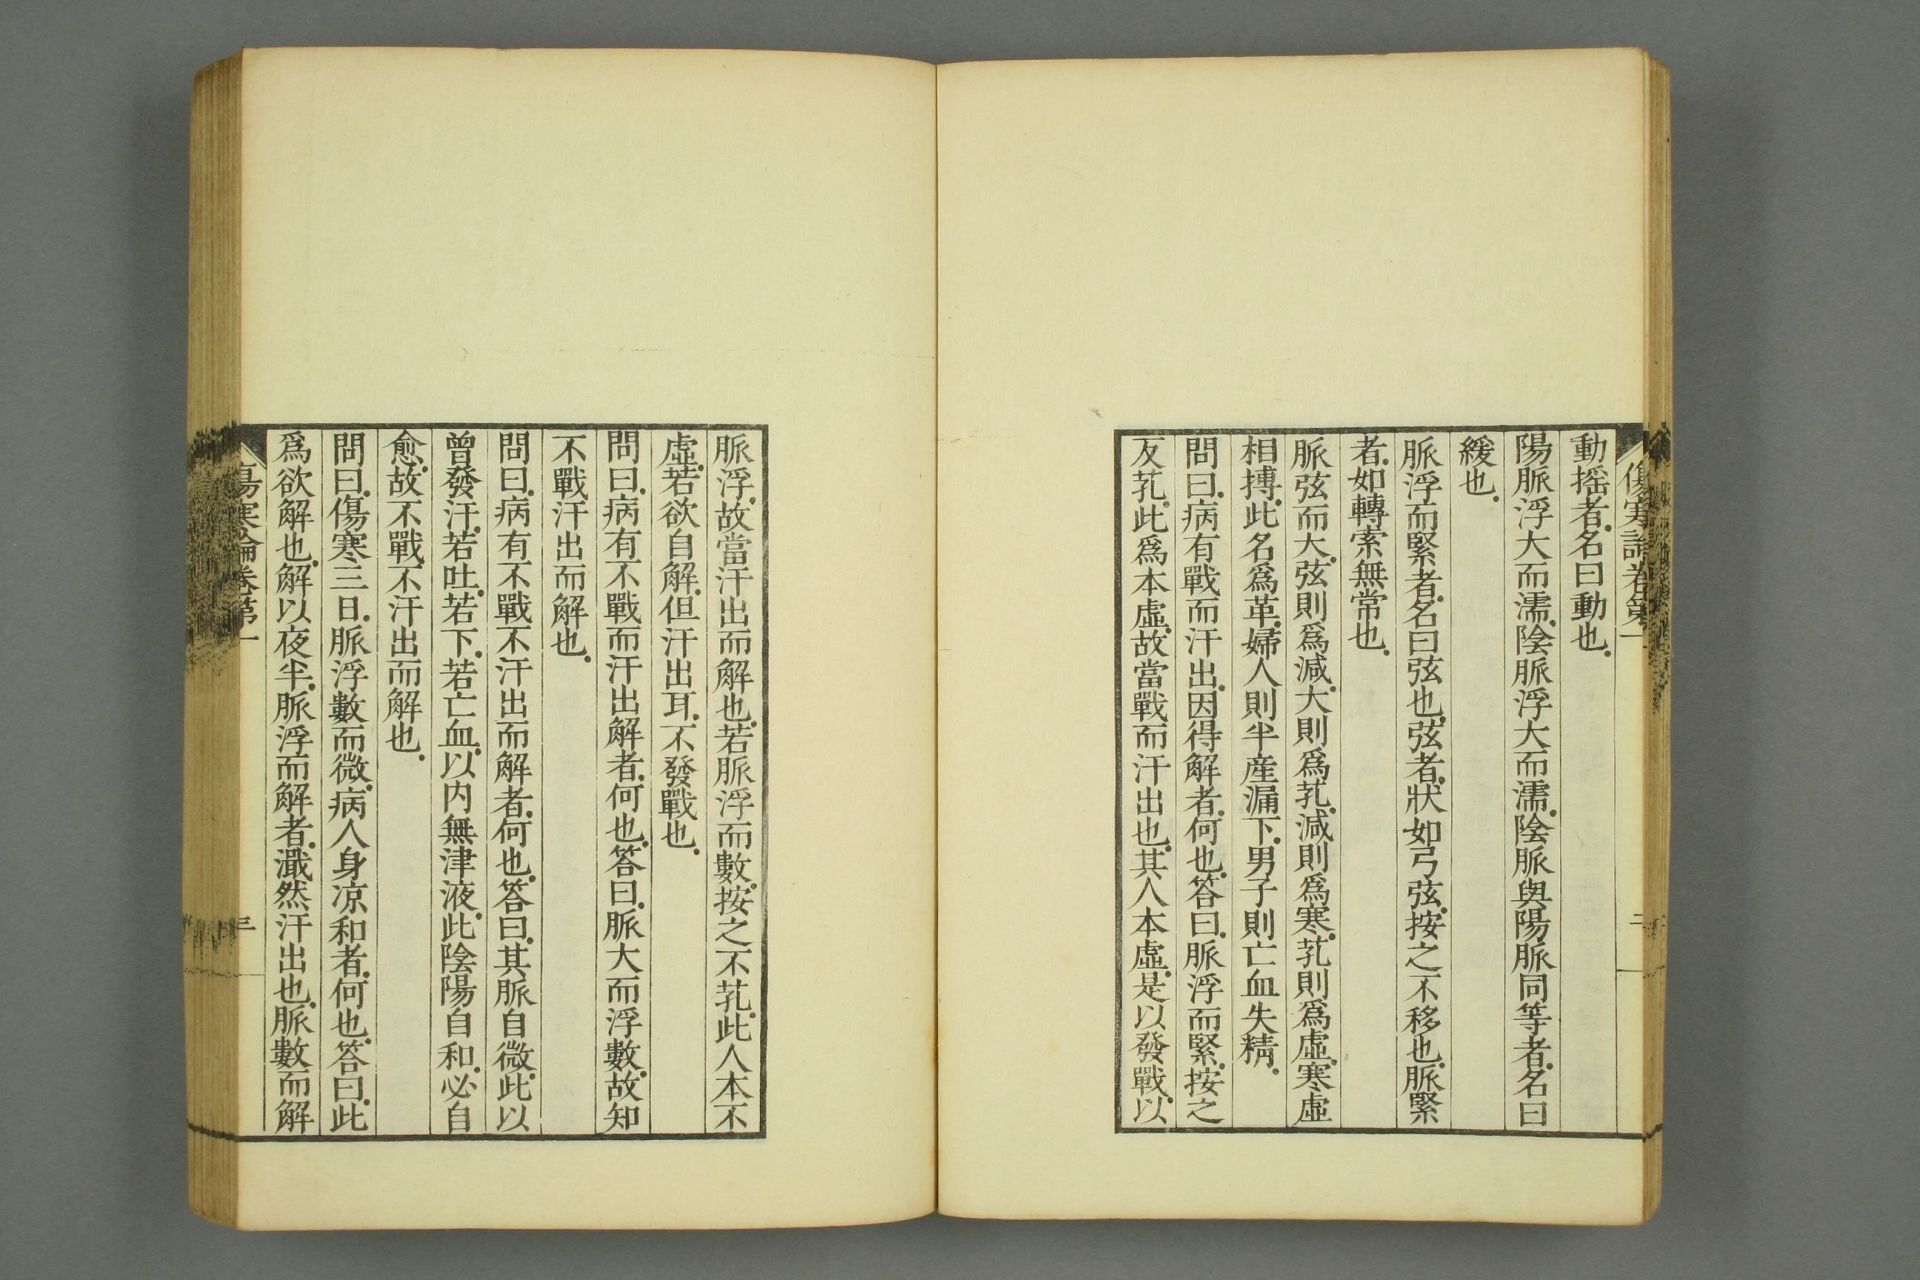 傷寒論卷第一
二
動搖者。名曰動也。
陽脈浮大而濡。陰脈浮大而濡。陰脈與陽脈同等者。名曰
緩也。
脈浮而緊者。名曰弦也。弦者。狀如弓弦。按之不移也。脈緊
者。如轉索無常也。
脈弦而大。弦則爲減。大則爲芤。減則爲寒。芤則爲虛。寒虛
相搏。此名爲革。婦人則半産漏下。男子則亡血失精。
問曰。病有戰而汗出。因得解者。何也。荅曰。脈浮而緊。按之
反芤。此爲本虛。故當戰而汗出也。其人本虛。是以發戰。以
脈浮。故當汗出而解也。若脈浮而數。按之不芤。此人本不
虛。若欲自解。但汗出耳。不發戰也。
問曰。病有不戰而汗出解者。何也。荅曰。脈大而浮數。故知
不戰汗出而解也。
問曰。病有不戰不汗出而解者。何也。荅曰。其脈自微。此以
曾發汗。若吐。若下。若亡血。以内無津液。此陰陽自和。必自
愈。故不戰不汗出而解也。
問曰。傷寒三日。脈浮數而微。病人身凉和者。何也。荅曰。此
爲欲解也。解以夜半。脈浮而解者。濈然汗出也。脈數而解
傷寒論卷第一
三